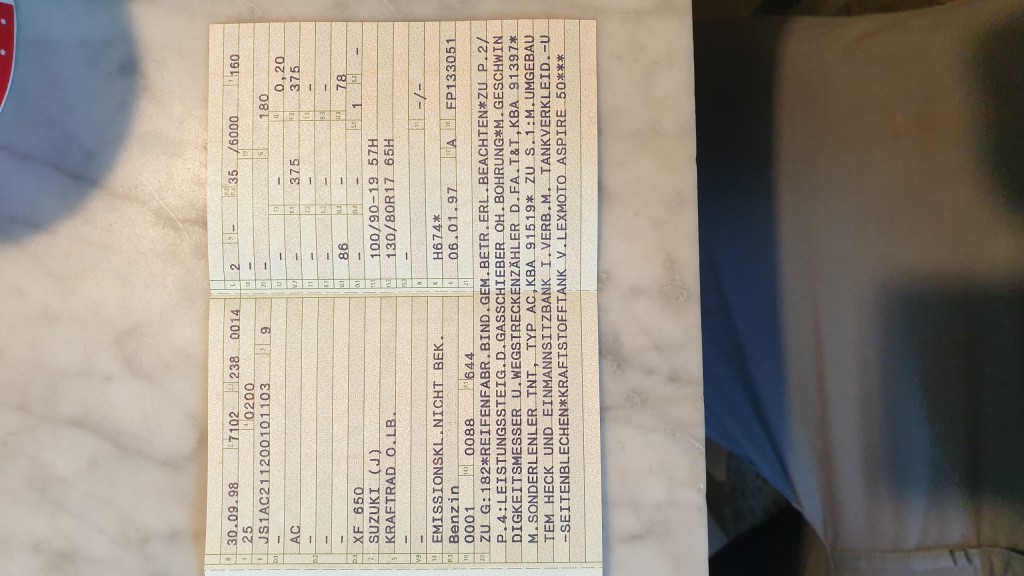 30.09.98 7102 238 0014
25 0200
JS1AC211200101103 9
-
AC
-
-
-
XF 650
SUZUKI (J)
KRAFTRAD O.LB.
-
-
EMISSIONSKL.NICHT BEK.
Benzin
0001 0088 644
2 - 35 /6000 160
-
- 180
- - 0,20
375 375
- -
- -
86 - 78
- - 1 -
100/90-19 57H
130/80R17 65H
-
-/-
H674*
06.01.97 A FP133051
ZU G:182*REIFENFABR.BIND.GEM.BETR.ERL.BEACHTEN*ZU P.2/
P.4:LEISTUNGSSTEIG.D.GASSCHIEBER OH.BOHRUNG*M.GESCHWIN
DIGKEITSMESSER U.WEGSTRECKENZÄHLER D.FA.T&T,KBA 91397*
M.SONDERLENLER TNT, TYP AC,KBA 91519* ZU S.1:M.UMGEBAU
TEM HECK UND EINMANNSITZBANK I.VERB.M. TANKVERKLEID.-U
-SEITENBLECHEN*KRAFTSTOFFTANK V.LEXMOTO ASPIRE 50***